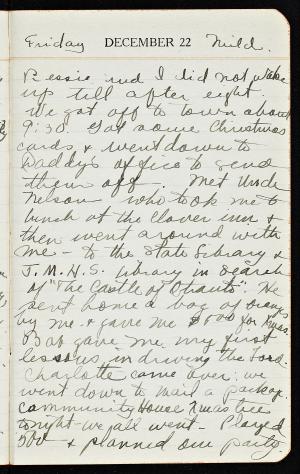 Friday DECEMBER 22 Mild.
Bessie and I did not wake
up till after eight.
We got off to town about
9:30. Got some Christmas
cards & went down to
Daddy's office to send
them off. Met Uncle
Nelson who took me to
lunch at the Clover Inn &
then went around with
me - to the State Library &
J.M.H.S. library in search
of "The Castle of Otranto". He
sent home a bag of oranges
by me & gave me $5.00 for Xmas.
Bab gave me my first
lessons in driving the Ford.
Charlotte came over; we
went down to mail a package.
Community House Xmas tree
tonight we all went - Played
500 & planned our party.